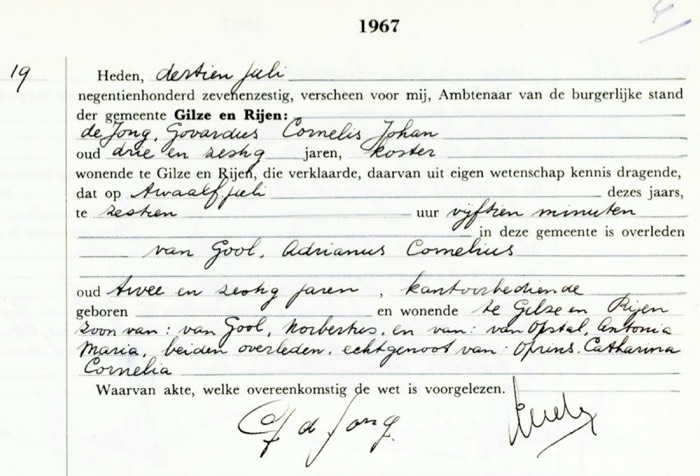 1967
19
Heden, dertien juli
negentienhonderd zevenenzestig, verscheen voor mij, Ambtenaar van de burgerlijke stand
der gemeente Gilze en Rijen:
de Jong, Govardus Cornelis Johan
oud drie en zestig jaren, koster
wonende te Gilze en Rijen, die verklaarde, daarvan uit eigen wetenschap kennis dragende,
dat op twaalf juli dezes jaars,
te zestien uur vijftien minuten
in deze gemeente is overleden
van Gool, Adrianus Cornelius
oud twee en zestig jaren, kantoorbediende
geboren en wonende te Gilze en Rijen
zoon van: van Gool, Norbertus, en van: van Opstal, Antonia
Maria, beiden overleden, echtgenoot van: Oprins, Catharina
Cornelia
Waarvan akte, welke overeenkomstig de wet is voorgelezen.
de Jong.